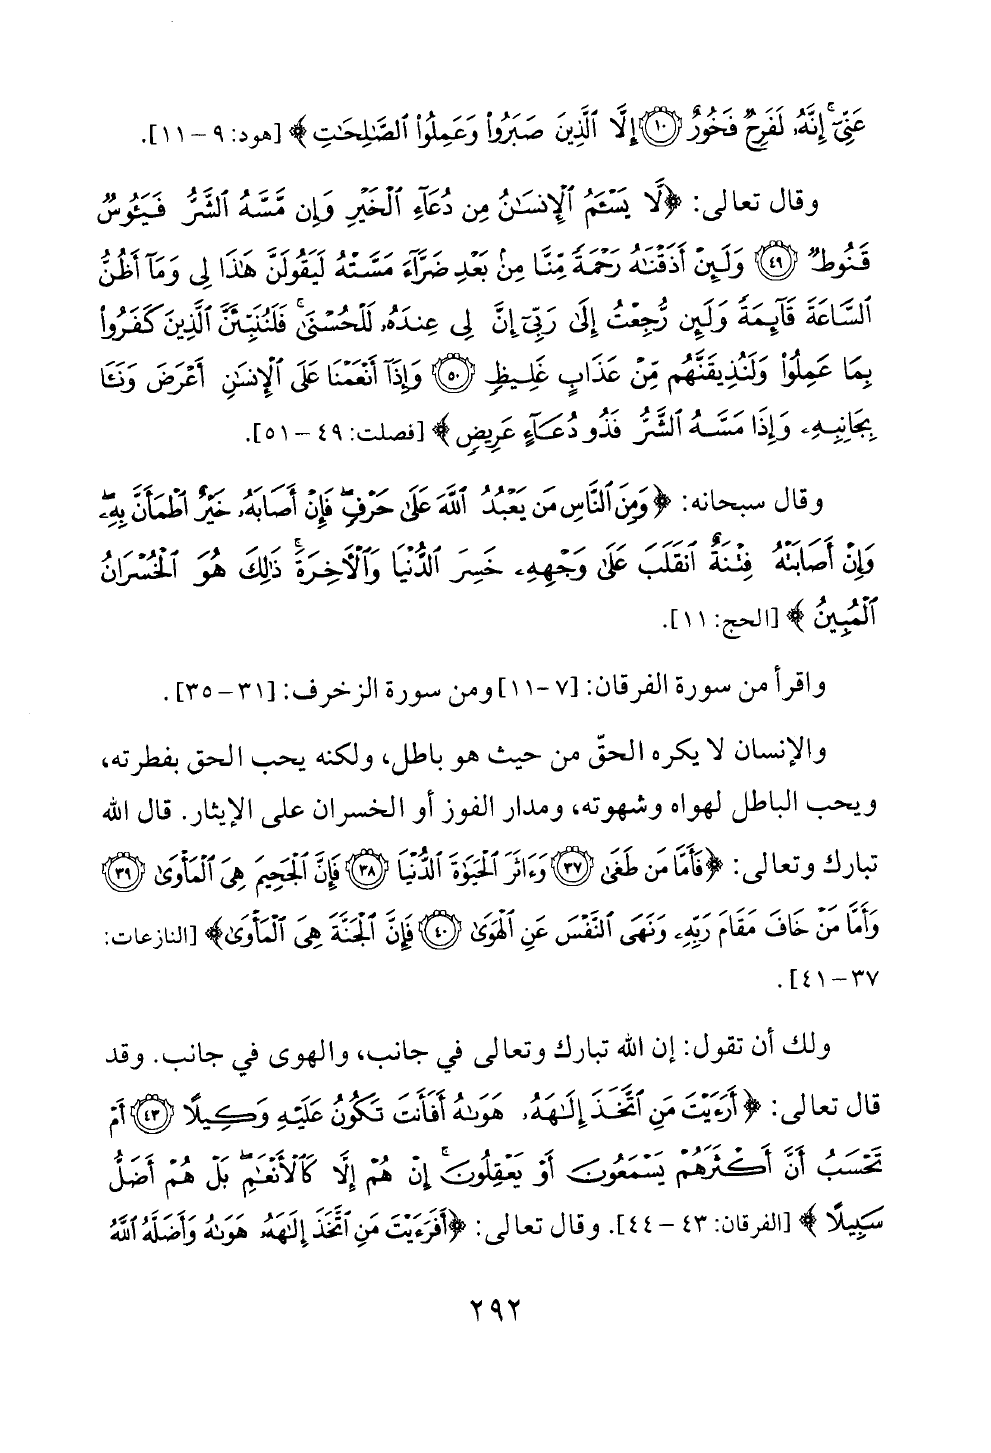 عَنِّيٓۚ إِنَّهُۥ لَفَرِحٞ فَخُورٌ ١٠ إِلَّا ٱلَّذِينَ صَبَرُواْ وَعَمِلُواْ ٱلصَّٰلِحَٰتِ ﴾ [هود: ٩ - ١١].
وقال تعالى: ﴿ لَّا يَسۡـَٔمُ ٱلۡإِنسَٰنُ مِن دُعَآءِ ٱلۡخَيۡرِ وَإِن مَّسَّهُ ٱلشَّرُّ فَيَـُٔوسٞ
قَنُوطٞ ٤٩ وَلَئِنۡ أَذَقۡنَٰهُ رَحۡمَةٗ مِّنَّا مِنۢ بَعۡدِ ضَرَّآءَ مَسَّتۡهُ لَيَقُولَنَّ هَٰذَا لِي وَمَآ أَظُنُّ
ٱلسَّاعَةَ قَآئِمَةٗ وَلَئِن رُّجِعۡتُ إِلَىٰ رَبِّيٓ إِنَّ لِي عِندَهُۥ لَلۡحُسۡنَىٰۚ فَلَنُنَبِّئَنَّ ٱلَّذِينَ كَفَرُواْ
بِمَا عَمِلُواْ وَلَنُذِيقَنَّهُم مِّنۡ عَذَابٍ غَلِيظٖ ٥٠ وَإِذَآ أَنۡعَمۡنَا عَلَى ٱلۡإِنسَٰنِ أَعۡرَضَ وَنَـَٔا
بِجَانِبِهِۦ وَإِذَا مَسَّهُ ٱلشَّرُّ فَذُو دُعَآءٍ عَرِيضٖ ﴾ [فصلت: ٤٩ - ٥١].
وقال سبحانه: ﴿ وَمِنَ ٱلنَّاسِ مَن يَعۡبُدُ ٱللَّهَ عَلَىٰ حَرۡفٖۖ فَإِنۡ أَصَابَهُۥ خَيۡرٌ ٱطۡمَأَنَّ بِهِۦۖ
وَإِنۡ أَصَابَتۡهُ فِتۡنَةٌ ٱنقَلَبَ عَلَىٰ وَجۡهِهِۦ خَسِرَ ٱلدُّنۡيَا وَٱلۡأٓخِرَةَۚ ذَٰلِكَ هُوَ ٱلۡخُسۡرَانُ
ٱلۡمُبِينُ ﴾ [الحج: ١١].
واقرأ من سورة الفرقان: [٧ - ١١] ومن سورة الزخرف: [٣١ - ٣٥].
والإنسان لا يكره الحقّ من حيث هو باطل، ولكنه يحب الحق بفطرته،
ويحب الباطل لهواه وشهوته، ومدار الفوز أو الخسران على الإيثار. قال الله
تبارك وتعالى: ﴿ فَأَمَّا مَن طَغَىٰ ٣٧ وَءَاثَرَ ٱلۡحَيَوٰةَ ٱلدُّنۡيَا ٣٨ فَإِنَّ ٱلۡجَحِيمَ هِيَ ٱلۡمَأۡوَىٰ ٣٩
وَأَمَّا مَنۡ خَافَ مَقَامَ رَبِّهِۦ وَنَهَى ٱلنَّفۡسَ عَنِ ٱلۡهَوَىٰ ٤٠ فَإِنَّ ٱلۡجَنَّةَ هِيَ ٱلۡمَأۡوَىٰ ﴾ [النازعات:
٣٧ - ٤١].
ولك أن تقول: إن الله تبارك وتعالى في جانب، والهوى في جانب. وقد
قال تعالى: ﴿ أَرَءَيۡتَ مَنِ ٱتَّخَذَ إِلَٰهَهُۥ هَوَىٰهُ أَفَأَنتَ تَكُونُ عَلَيۡهِ وَكِيلًا ٤٣ أَمۡ
تَحۡسَبُ أَنَّ أَكۡثَرَهُمۡ يَسۡمَعُونَ أَوۡ يَعۡقِلُونَۚ إِنۡ هُمۡ إِلَّا كَٱلۡأَنۡعَٰمِۖ بَلۡ هُمۡ أَضَلُّ
سَبِيلًا ﴾ [الفرقان: ٤٣ - ٤٤]. وقال تعالى: ﴿ أَفَرَءَيۡتَ مَنِ ٱتَّخَذَ إِلَٰهَهُۥ هَوَىٰهُ وَأَضَلَّهُ ٱللَّهُ
٢٩٢